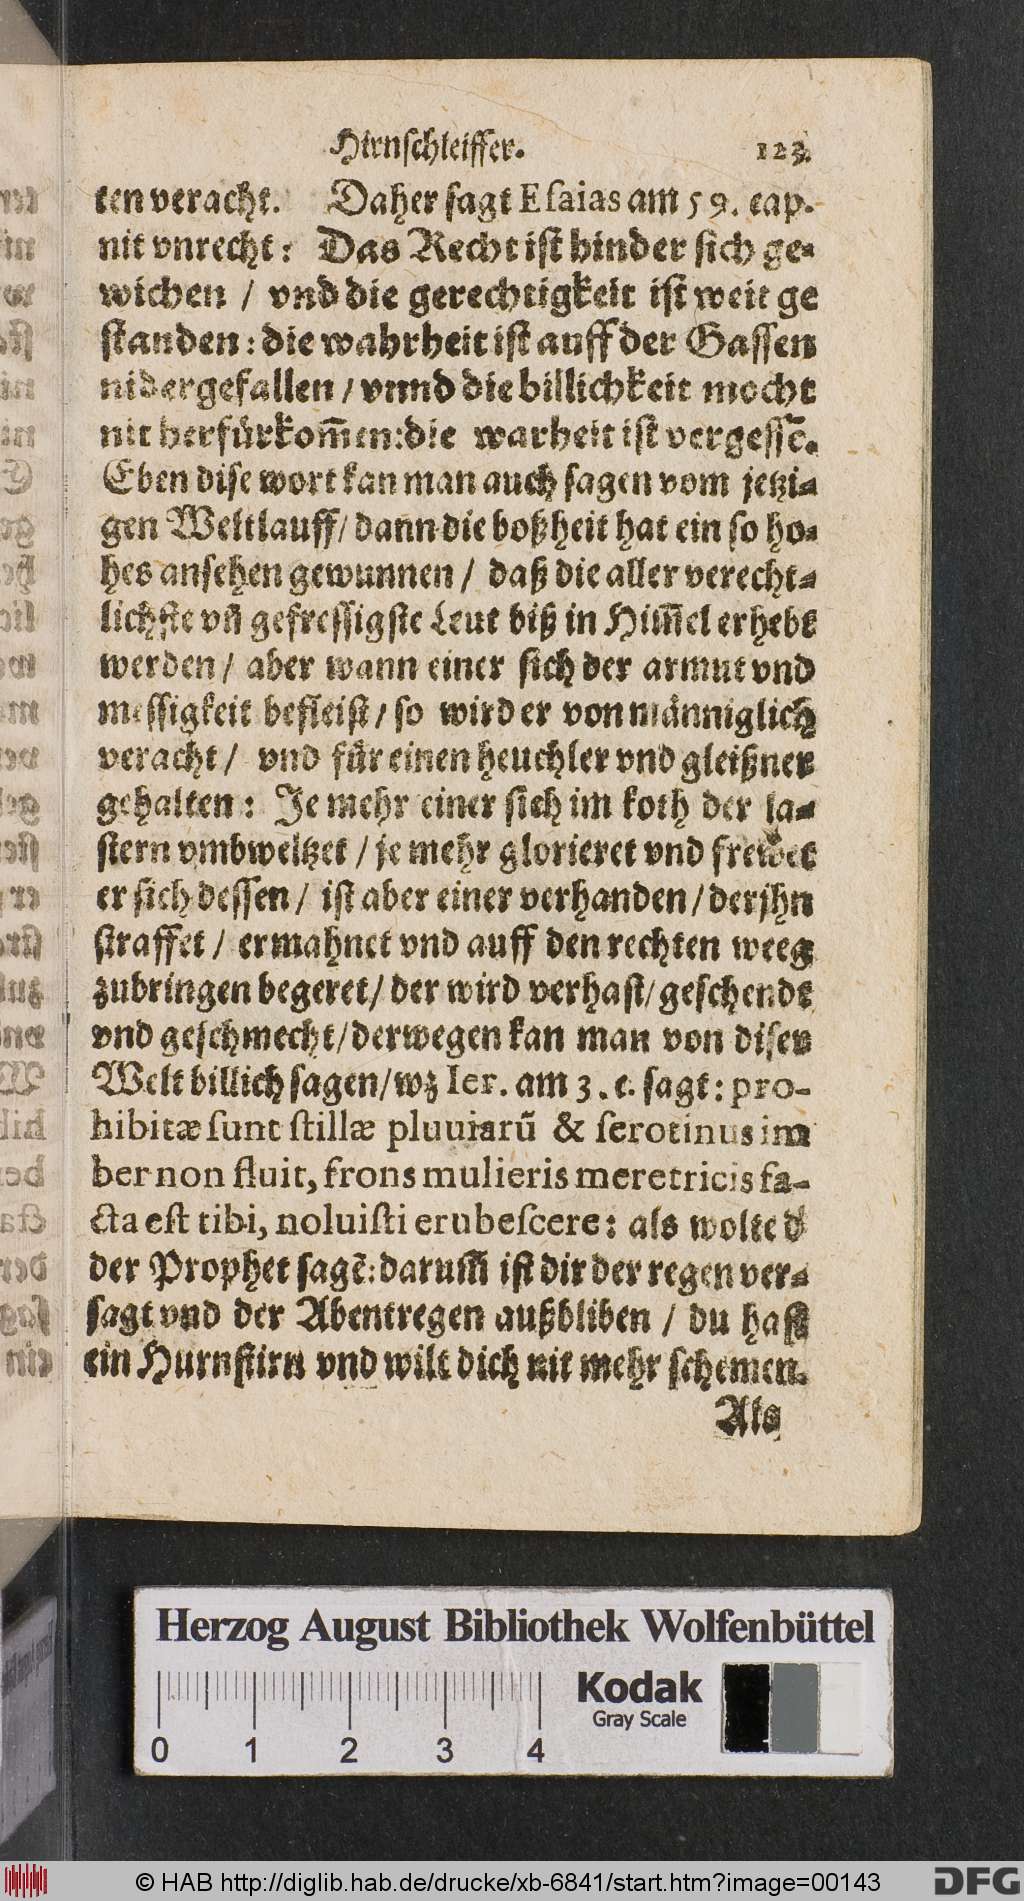 Hirnschleiffer. 123.
ten veracht. Daher sagt Esaias am 59. cap.
nit vnrecht: Das Recht ist hinder sich ge-
wichen / vnd die gerechtigkeit ist weit ge
standen: die wahrheit ist auff der Gassen
nidergefallen / vnnd die billichkeit mocht
nit herfürkom̃en: die warheit ist vergessẽ.
Eben dise wort kan man auch sagen vom jetzi-
gen Weltlauff / dann die boßheit hat ein so ho-
hes ansehen gewunnen / daß die aller verecht-
lichste vñ gefressigste Leut biß in Him̃el erhebt
werden / aber wann einer sich der armut vnd
messigkeit befleist / so wird er von männiglich
veracht / vnd für einen heuchler vnd gleißner
gehalten: Je mehr einer sich im koth der la-
stern vmbweltzet / je mehr glorieret vnd frewet
er sich dessen / ist aber einer verhanden / der jhn
straffet / ermahnet vnd auff den rechten weeg
zubringen begeret / der wird verhast / geschendt
vnd geschmecht / derwegen kan man von diser
Welt billich sagen / wz Ier. am 3. c. sagt: pro-
hibitæ sunt stillæ pluuiarũ & serotinus im
ber non fluit, frons mulieris meretricis fa-
cta est tibi, noluisti erubescere: als wolte
der Prophet sagẽ: darum̃ ist dir der regen ver-
sagt vnd der Abentregen außbliben / du hast
ein Hurnstirn vnd wilt dich nit mehr schemen.
Als
Herzog August Bibliothek Wolfenbüttel
Kodak
Gray Scale
0 1 2 3 4
© HAB http://diglib.hab.de/drucke/xb-6841/start.htm?image=00143
DFG